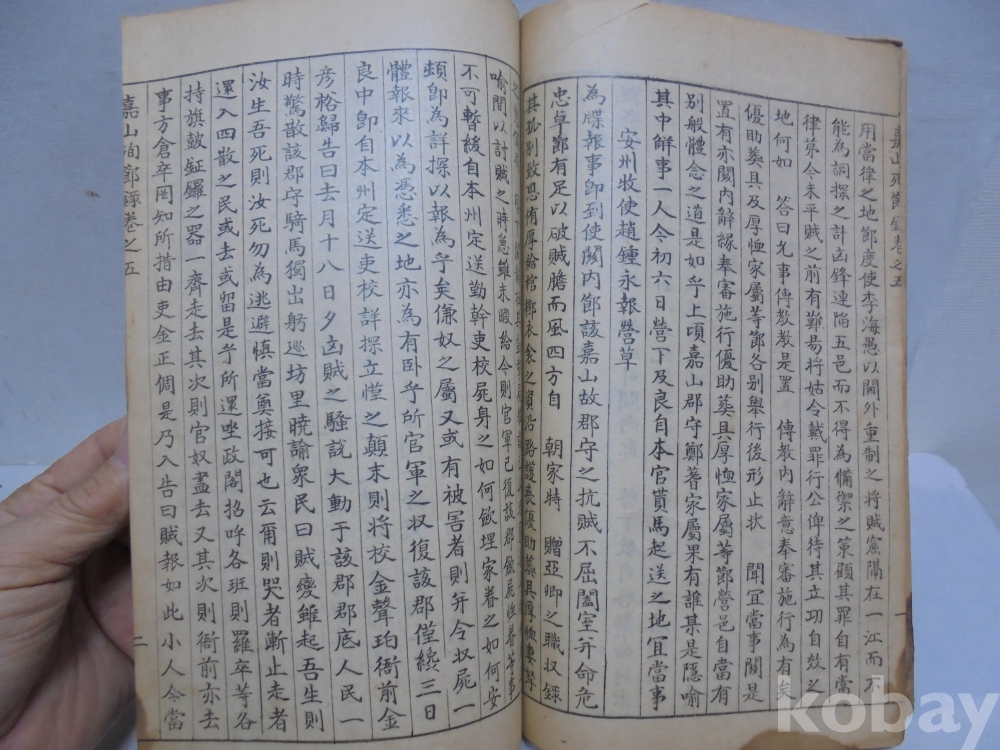 嘉山殉節錄卷之五
用當律之地節度使李海愚以閫外重制之將賊窟隔在一江而不
能為詗探之計凶鋒連陷五邑而不得為備禦之策顧其罪自有當
律第今未平賊之前有難易將姑令戴罪行公俾待其立功自效之
地何如 答曰允事傳敎敎是置 傳敎內辭意奉審施行為有矣
優助葬具及厚恤家屬等節各別舉行後形止狀 聞宜當事關是
置有亦關內辭緣奉審施行優助葬具厚恤家屬等節營邑自當有
別般體念之道是如乎上項嘉山郡守鄭蓍家屬果有誰某是隱喻
其中鮮事一人今初六日營下及良自本官貰馬起送之地宜當事
安州牧使趙鍾永報營草
為牒報事卽到使關內節該嘉山故郡守之抗賊不屈闔室幷命危
忠卓節有足以破賊膽而風四方自 朝家特 贈亞卿之職収錄
其孤別致恩侑厚給棺槨衣衾之需沿路護喪優助葬具厚恤妻孥
喻間以討賊之時急雖未暇給今則官軍已復該郡斂屍恤眷等事
不可暫緩自本州定送勤幹吏校屍身之如何斂埋家眷之如何安
頓卽為詳探以報為乎矣傔奴之屬又或有被害者則幷令収屍一
體報來以為憑悉之地亦為有卧乎所官軍之収復該郡僅纔三日
良中卽自本州定送吏校詳探立慬之顛末則將校金聲珀衙前金
彥格歸告曰去月十八日夕凶賊之騷說大動于該郡郡底人民一
時驚散該郡守騎馬獨出躬巡坊里曉諭衆民曰賊變雖起吾生則
汝生吾死則汝死勿為逃避慎當奠接可也云爾則哭者漸止走者
還入四散之民或去或留是乎所還坐政閣招呼各班則羅卒等各
持旗鼓鉦鑼之器一齊走去其次則官奴盡去又其次則衙前亦去
事方倉卒罔知所措由吏金正倜是乃入告曰賊報如此小人今當
嘉山殉節錄卷之五
二
kobay